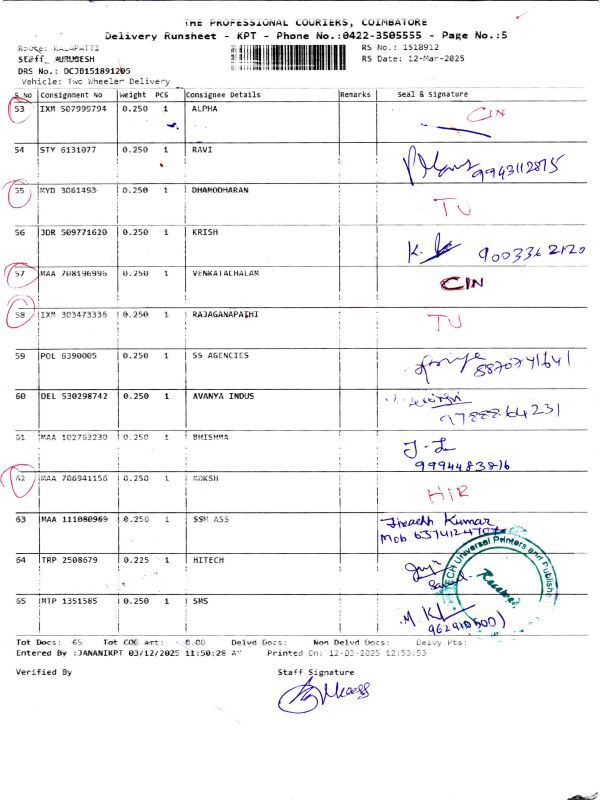 THE PROFESSIONAL COURIERS, COIMBATORE
Delivery Runsheet - KPT - Phone No.:0422-3505555 - Page No.:5
Route: KALAPATTI
RS No.: 1518912
Staff MURUGESH
RS Date: 12-Mar-2025
DRS No.: DCJB151891205
Vehicle: Two Wheeler Delivery
S No Consignment No Weight PCS Consignee Details Remarks Seal & Signature
53 IXM 507999794 0.250 1 ALPHA CIN
54 STY 6131077 0.250 1 RAVI
9943112875
55 MYD 3061493 0.250 1 DHAMODHARAN TU
56 JDR 509771620 0.250 1 KRISH K.
9003362120
57 MAA 708196996 0.250 1 VENKATACHALAM CIN
58 IXM 303473336 0.250 1 RAJAGANAPATHI TU
59 POL 6390005 0.250 1 SS AGENCIES
8870741641
60 DEL 530298742 0.250 1 AVANYA INDUS
9788864231
61 MAA 102763230 0.250 1 BHISHMA
9994483816
62 MAA 706941156 0.250 1 MOKSH HIR
63 MAA 111080969 0.250 1 SSM ASS Kumar
Mob
64 TRP 2508679 0.225 1 HITECH
HITECH Universal Printers and Publishe
65 MTP 1351585 0.250 1 SMS M.
Tot Docs: 65 Tot COE Amt: 0.00 Delvd Docs: Non Delvd Docs: Delvy Pts:
Entered By :JANANIKPT 03/12/2025 11:50:28 AM Printed On: 12-03-2025 12:53:53
Verified By Staff Signature